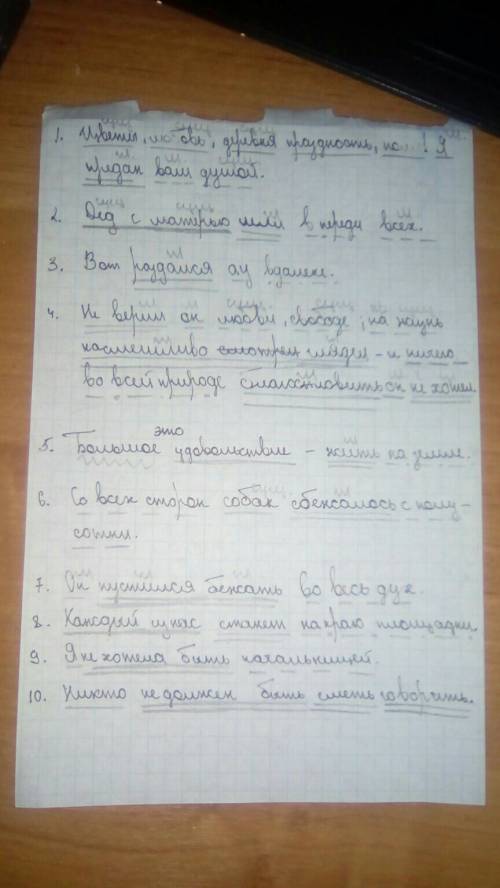 1. Цветы, любовь, деревня праздность, по ! Я
предан вам душой.
2. Дед с матерью шли в переди всех.
3. Вот раздался ау вдалеке.
4. Не верил он любви, свободе, на жизнь
насмешливо смотрел глядел - и ничего
во всей природе благословить он не хотел.
это
5. Большое удовольствие - жить на земле.
6. Со всех сторон собак сбежалось с полу-
сотни.
7. Он пустился бежать во весь дух.
8. Каждый из нас станет на краю площадки
9. Я не хотела быть начальницей.
10. Никто не должен быть сметь говорить.